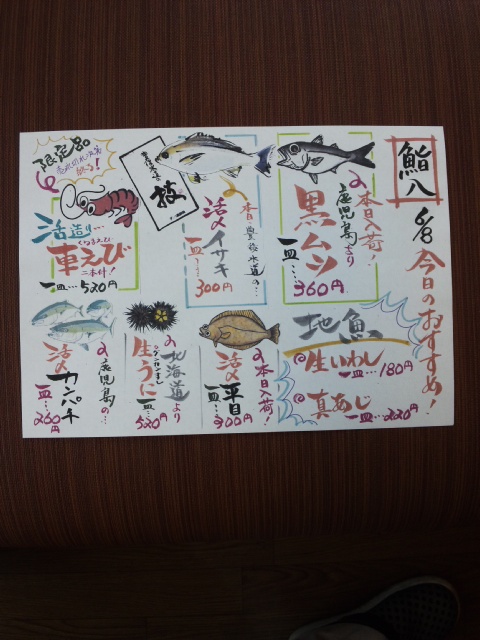 鮨八
今日のおすすめ！
本日入荷！
鹿児島より
黒ムツ
一皿…360円
本日！豊後水道の…
活〆イサキ
一皿…300円
技
限定品
活造り…
車えび
くるまえび
二本付！
一皿…520円
地魚
生いわし
一皿…180円
真あじ
一皿…220円
本日入荷！
活〆平目
一皿…300円
北海道より
生うに
一皿…520円
鹿児島の…
活〆カンパチ
一皿…260円